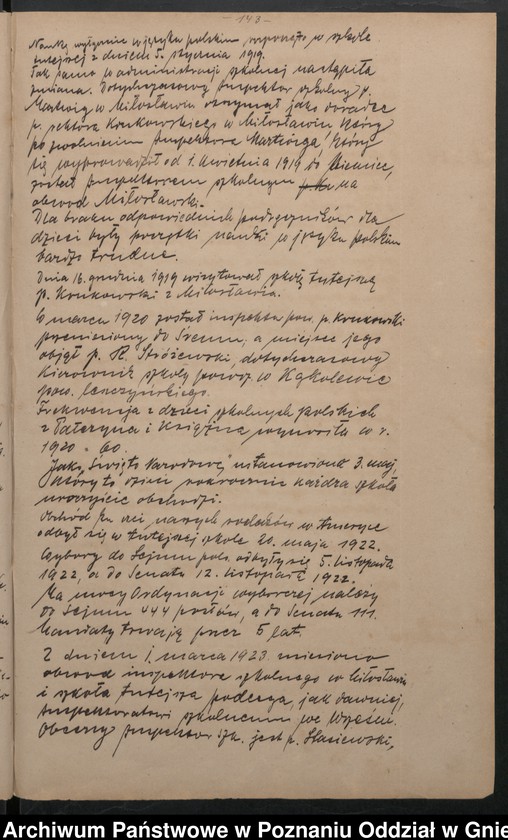 - 143 -
Naukę wyłącznie w języku polskim, rozpoczęto w szkole
tutejszej z dniem 5. stycznia 1919.
Tak samo w administracji szkolnej nastąpiła
zmiana. Dotychczasowy Inspektor szkolny p.
Martwig w Miłosławiu otrzymał jako doradcę
p. rektora Krukowskiego w Miłosławiu który
po zwolnieniu Inspektora Martwiga, który
się wyprowadził od 1. kwietnia 1919 do Niemiec,
został Inspektorem szkolnym na
obwód Miłosławski.
Dla braku odpowiednich podręczników dla
dzieci były początki nauki w języku polskim
bardzo trudne.
Dnia 16. grudnia 1919 wizytował szkołę tutejszą
p. Krukowski z Miłosławia.
W marcu 1920 został inspektor pow. p. Krukowski
przeniesiony do Śremu, a miejsce jego
objął p. R. Stróżewski, dotychczasowy
kierownik szkoły powsz. w Kąkolewie
pow. leszczyńskiego.
Frekwencja z dzieci szkolnych polskich
z i Książna wynosiła w r.
1920 - 60.
Jako "Święto Narodowe" ustanowiono 3. maj,
który to dzień rokrocznie każda szkoła
uroczyście obchodzi.
Obchód ku czci naszych rodaków w Ameryce
odbył się w tutejszej szkole 20. maja 1922.
Wybory do Sejmu pols. odbyły się 5. listopada
1922, a do Senatu 12. listopada 1922.
Na mocy Ordynacji wyborczej należy
do Sejmu 444 posłów, a do Senatu 111.
Mandaty trwają przez 5 lat.
Z dniem 1. marca 1923 zniesiono
obwód inspektora szkolnego w Miłosławiu
i szkoła tutejsza podlega, jak dawniej,
Inspektoratowi szkolnemu we Wrześni.
Obecny Inspektor szk. jest p. Stasiewski,
Archiwum Państwowe w Poznaniu Oddział w Gnie